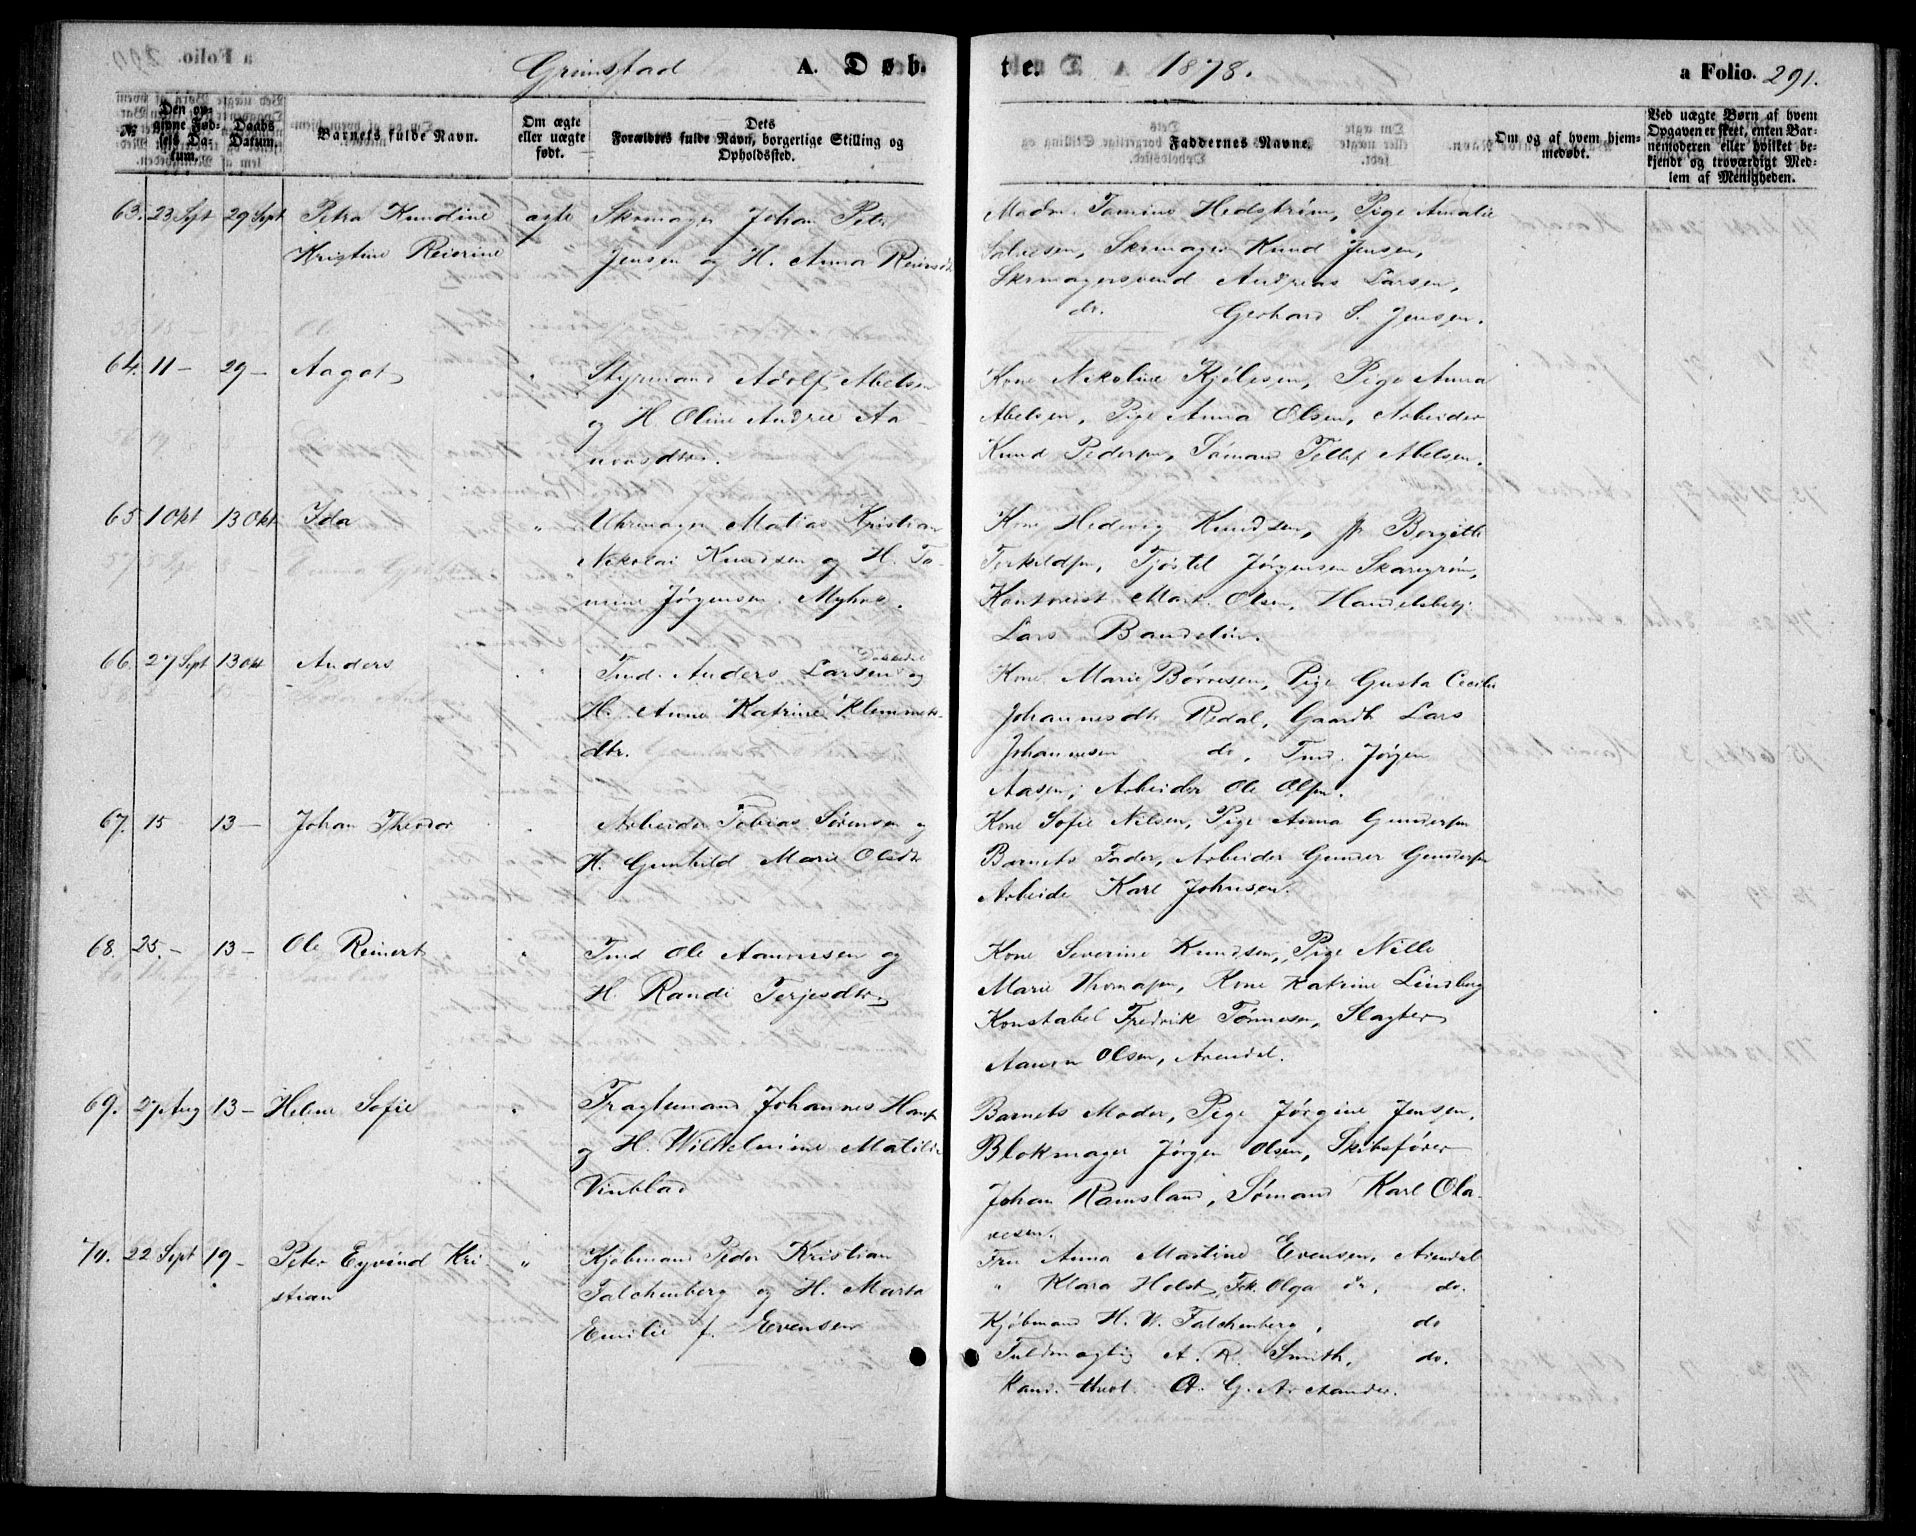 Grimstad A. Døbte. 1878. a Folio. 291.
№
Den opgivne Fødsels Datum.
Daabs Datum.
Barnets fulde Navn.
Om ægte eller uægte født.
Dets Forældres fulde Navn, borgerlige Stilling og Opholdssted.
Faddernes Navne.
Om og af hvem hjemmedøbt.
Ved uægte Børn af hvem Opgaven er skeet, enten Barnemoderen eller hvilket bekjendt og troværdigt Medlem af Menigheden.
63. 23 Sept 29 Sept Petra Kundine ægte Skomager Johan Peter
Kristine Reierine Jensen og H. Anna Reiersdtr
Madm. Tomine Hedstrøm, Pige Amalie
Salvesen, Skomager Knud Jensen,
Skomagersvend Andreas Larsen,
do. Gerhard S. Jensen.
64. 11 – 29 – Aagot " Styrmand Adolf Abelsen
og H. Oline Andrea Aa-
norsdtr.
Kone Nikoline Kjølesen, Pige Anna
Abelsen, Pige Anna Olsen, Arbeider
Knud Pedersen, Sømand Tellef Abelsen.
65 1 Okt 13 Okt Ida " Uhrmager Matias Kristian
Nikolai Knudsen og H. To-
mine Jørgensen Myhre.
Kone Hedevig Knudsen, Borgitte
Terkildsen, Tjøstel Jørgensen
Kontorist Mart. Olsen, Handelsbetj.
Lars Bandelin.
66. 27 Sept 13 Okt Anders " Tmd. Anders Larsen og
H. Anne Katrine Klemmets-
dtr.
Kone Marie Børresen, Pige Gusta Cecilie
Johannesdtr Redal, Gaardb. Lars
Johannesen do, Tmd. Jørgen
Aasen, Arbeider Ole Olsen.
67. 15 13 – Johan Theodor " Arbeider Tobias Sørensen og
H. Gunhild Marie Olsdtr
Kone Sofie Nilsen, Pige Anna Gundersen
Barnets Fader, Arbeider Gunder Gundersen
Arbeider Karl Johnsen.
68. 25. – 13 – Ole Reinert " Tmd Ole Aamonsen og
H. Randi Terjesdtr
Kone Severine Knudsen, Pige Nille
Marie Thomasen, Kone Katrine Lindberg
Konstabel Fredrik Tønnesen, Slagter
Aanon Olsen, Arendal.
69. 27 Aug 13 – Helene Sofie " Fragtemand Johannes
og H. Wilhelmine Matilde
Vinblad
Barnets Moder, Pige Jørgine Jensen,
Blokmager Jørgen Olsen, Skibsfører
Johan Ramsland, Sømand Karl Ola-
vesen.
70. 22 Sept 19 – Peter Eyvind Kri- " Kjøbmand Peder Kristian
stian Falchenberg og H. Marta
Emilie f. Evensen
Fru Anna Martine Evensen, Arendal
" Klara Holst, Frk. Olga do, do.
Kjøbmand H. V. Falchenberg, do
Fuldmægtig A. R. Smith, do.
Kand. theol. O. G.